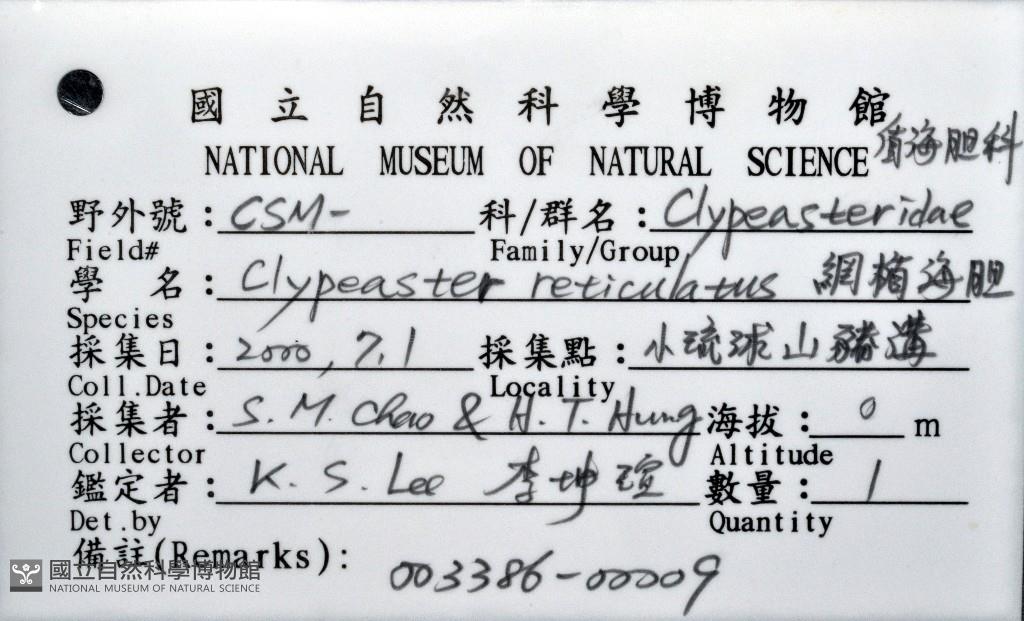 國立自然科學博物館
NATIONAL MUSEUM OF NATURAL SCIENCE 盾海胆科
野外號：CSM- 科/群名：Clypeasteridae
Field# Family/Group
學名：Clypeaster reticulatus 網楯海胆
Species
採集日：2000, 7.1 採集點：小琉球山豬溝
Coll.Date Locality
採集者：S. M. Chao & H. T. Hung 海拔：0 m
Collector Altitude
鑑定者：K. S. Lee 李坤瑄 數量：1
Det.by Quantity
備註(Remarks):
003386-00009
國立自然科學博物館
NATIONAL MUSEUM OF NATURAL SCIENCE